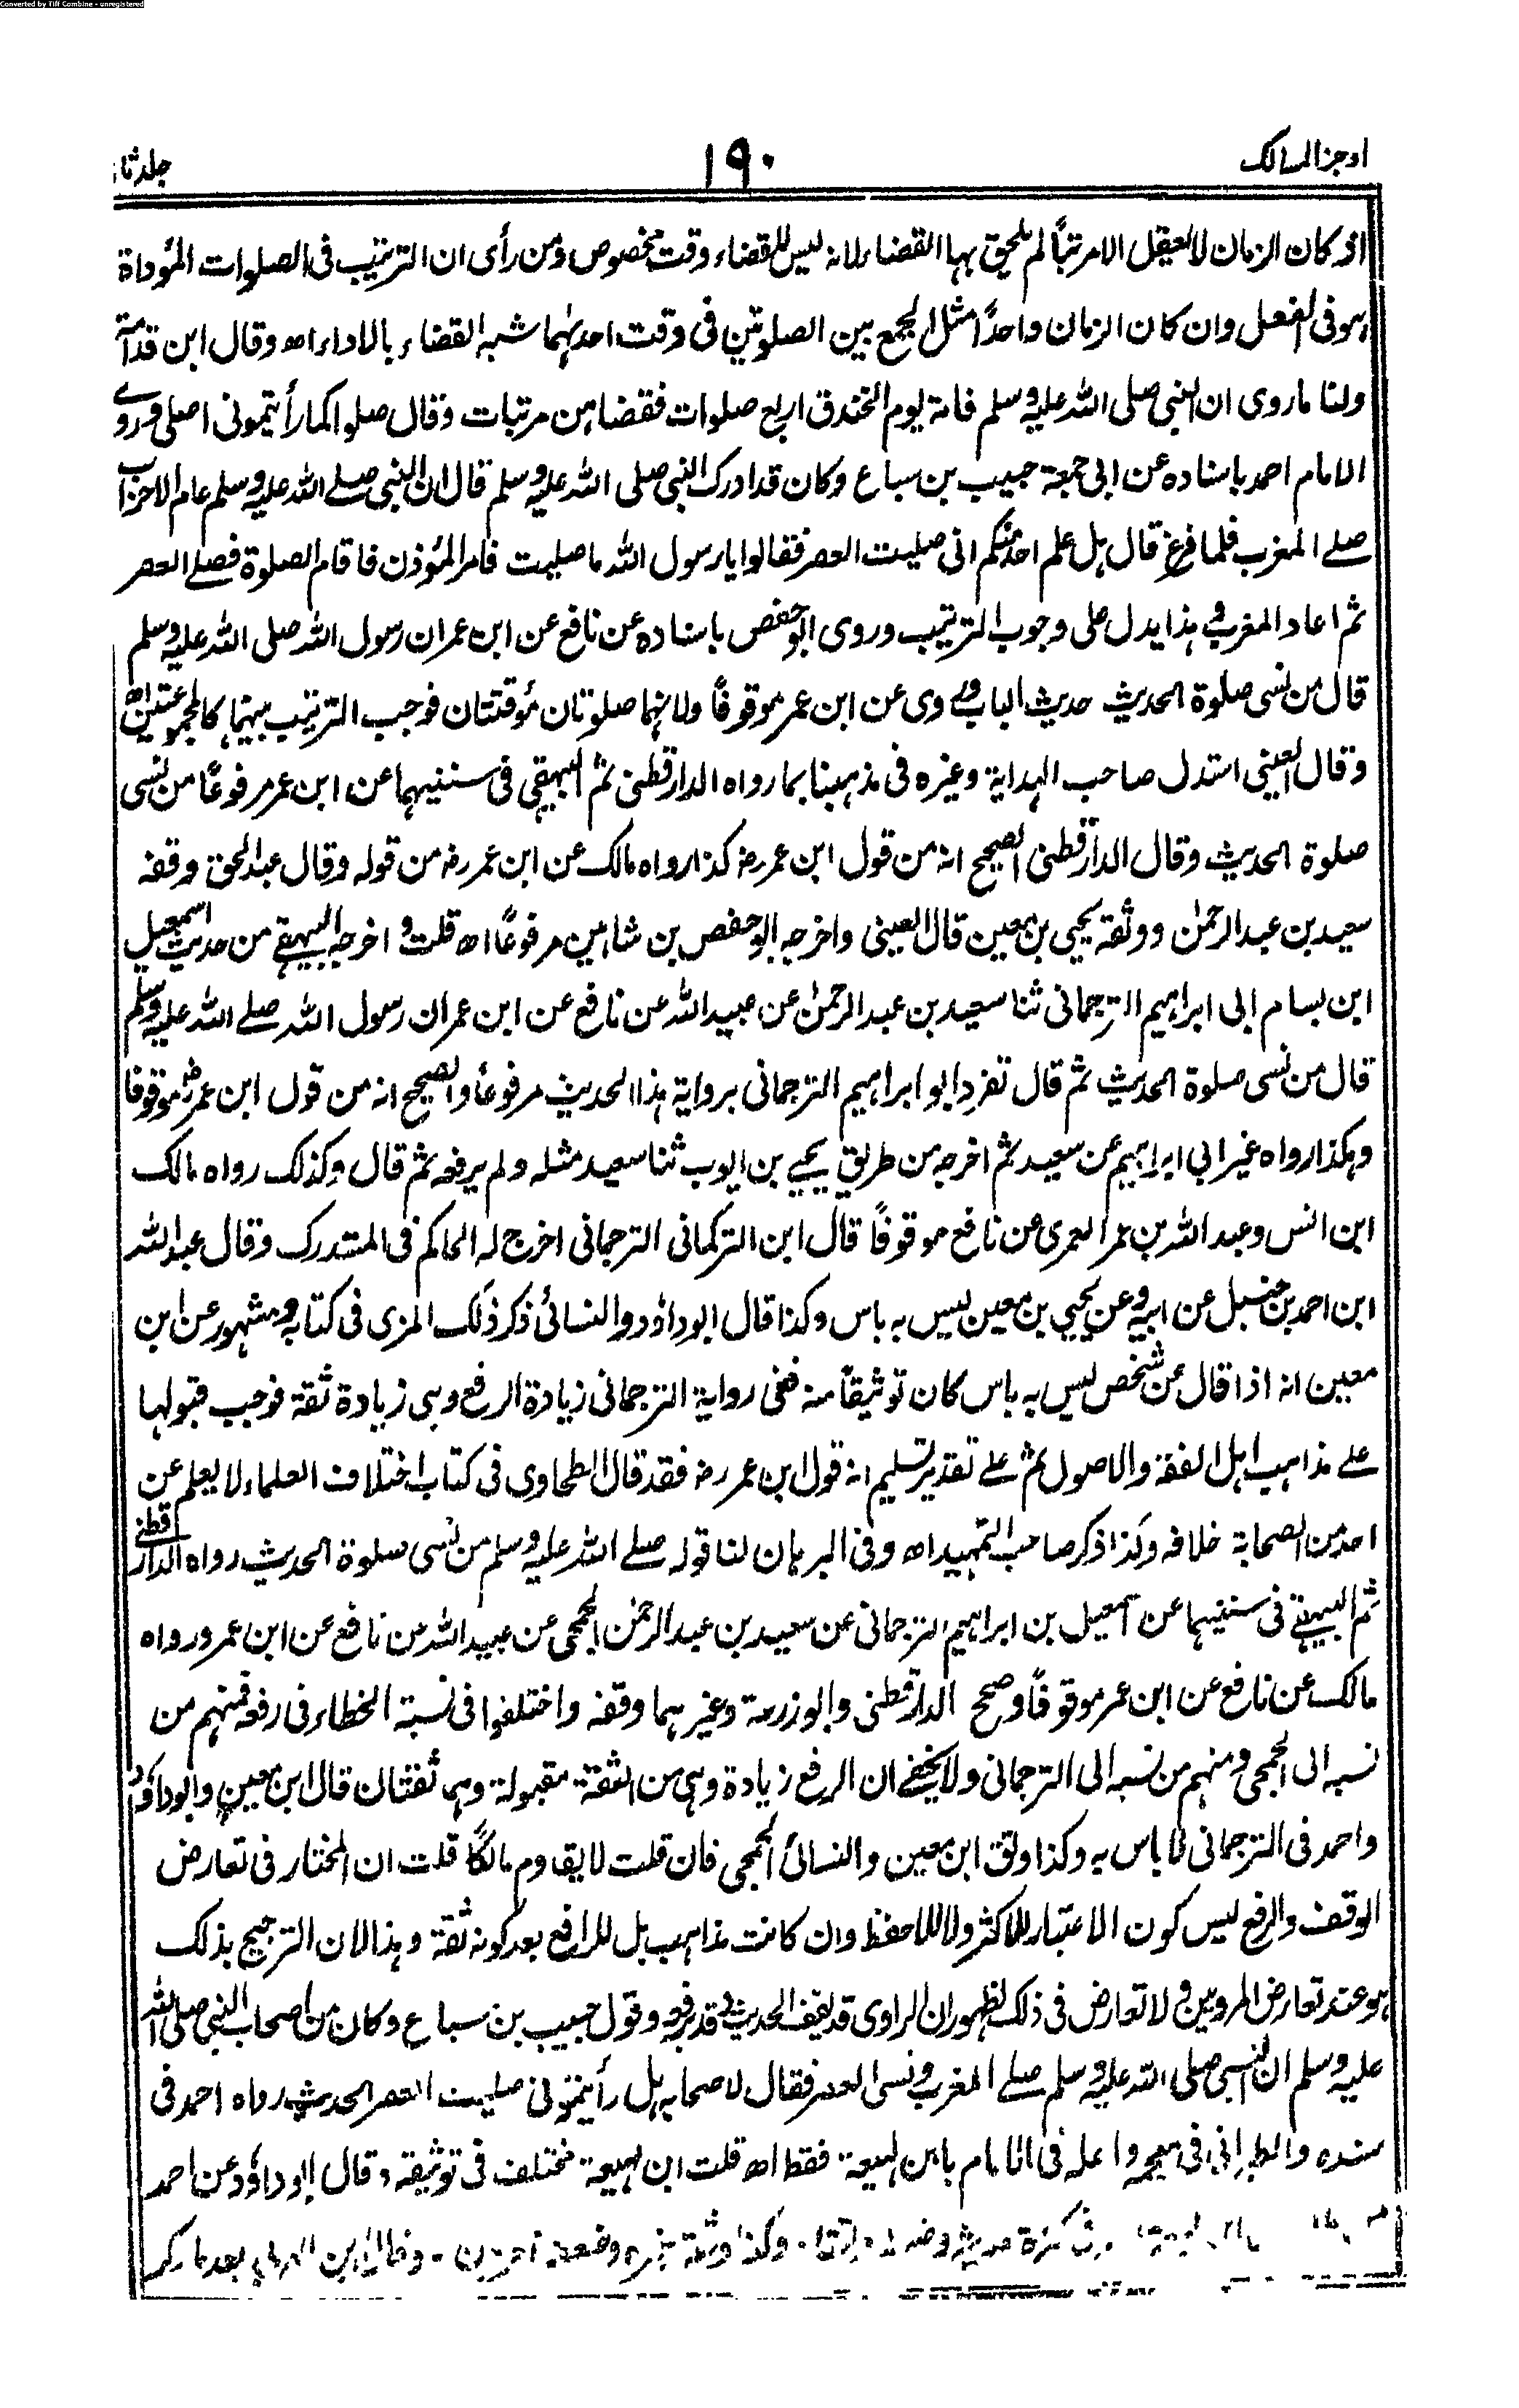 Converted by Tiff Combine - unregistered
اوجز المسالک
١٩٠
جلد ثا
اذ کان الزمان لا یعقل الا مرتباً لم یلحق بہا القضاء لانہ لیس للقضاء وقت مخصوص ومن رأی ان الترتیب فی الصلوات المؤداة
ہو فی الفعل وان کان الزمان واحداً مثل الجمع بین الصلوتین فی وقت احدہما شبہ القضاء بالاداء اھ وقال ابن قدامۃ
ولنا ماروی ان النبی صلی اللہ علیہ وسلم فاتہ یوم الخندق اربع صلوات فقضاہن مرتبات وقال صلوا کما رأیتمونی اصلی وروے
الامام احمد باسنادہ عن ابی جمعۃ حبیب بن سباع وکان قد ادرک النبی صلی اللہ علیہ وسلم قال ان النبی صلے اللہ علیہ وسلم عام الاحزاب
صلے المغرب فلما فرغ قال ہل علم احد منکم انی صلیت العصر فقالوا یا رسول اللہ ما صلیت فامر المؤذن فاقام الصلوة فصلے العصر
ثم اعاد المغرب وہذا یدل علی وجوب الترتیب وروی ابو حفص باسنادہ عن نافع عن ابن عمر ان رسول اللہ صلی اللہ علیہ وسلم
قال من نسی صلوة الحدیث حدیث الباب وروی عن ابن عمر موقوفاً ولانہما صلوتان مؤقتتان فوجب الترتیب بینہما کالمجموعتین اھ
وقال العینی استدل صاحب الہدایة وغیرہ فی مذہبنا بما رواہ الدارقطنی ثم البیہقی فی سننیہما عن ابن عمر مرفوعاً من نسی
صلوة الحدیث وقال الدارقطنی الصحیح انہ من قول ابن عمر رض کذا رواہ مالک عن ابن عمر رض من قولہ وقال عبد الحق وقفہ
سعید بن عبد الرحمٰن ووثقہ یحیی بن معین قال العینی واخرجہ ابو حفص بن شاہین مرفوعاً اھ قلت واخرجہ البیہقے من حدیث اسمعیل
ابن بسام ابی ابراہیم الترجمانی ثنا سعید بن عبد الرحمٰن عن عبید اللہ عن نافع عن ابن عمر ان رسول اللہ صلے اللہ علیہ وسلم
قال من نسی صلوة الحدیث ثم قال تفرد ابو ابراہیم الترجمانی بروایة ہذا الحدیث مرفوعاً والصحیح انہ من قول ابن عمر رض موقوفا
وہکذا رواہ غیر ابی ابراہیم عن سعید ثم اخرجہ من طریق یحیے بن ایوب ثنا سعید مثلہ ولم یرفعہ ثم قال وکذلک رواہ مالک
ابن انس وعبد اللہ بن عمر العمری عن نافع موقوفاً قال ابن الترکمانی الترجمانی اخرج لہ الحاکم فی المستدرک وقال عبد اللہ
ابن احمد بن حنبل عن ابیہ وعن یحیی بن معین لیس بہ باس وکذا قال ابو داؤد والنسائی ذکر ذلک المزی فی کتابہ ومشہور عن ابن
معین انہ اذا قال عن شخص لیس بہ باس کان توثیقاً منہ ففی روایة الترجمانی زیادة الرفع وہی زیادة ثقة فوجب قبولہا
علے مذاہب اہل الفقہ والاصول ثم علے تقدیر تسلیم انہ قول ابن عمر رض فقد قال الطحاوی فی کتاب اختلاف العلماء لا یعلم عن
احد من الصحابة خلافہ وکذا ذکر صاحب التمہید اھ وفی البرہان لنا قولہ صلے اللہ علیہ وسلم من نسی صلوة الحدیث رواہ الدارقطنے
ثم البیہقے فی سننیہما عن اسمعیل بن ابراہیم الترجمانی عن سعید بن عبد الرحمٰن الجمحی عن عبید اللہ عن نافع عن ابن عمر ورواہ
مالک عن نافع عن ابن عمر موقوفاً وصحح الدارقطنی وابو زرعة وغیرہما وقفہ واختلفوا فی نسبة الخطاء فی رفعہ فمنہم من
نسبہ الی الجمحی ومنہم من نسبہ الی الترجمانی ولا یخفے ان الرفع زیادة وہی من الثقة مقبولة وہما ثقتان قال ابن معین وابو داؤد
واحمد فی الترجمانی لا باس بہ وکذا وثق ابن معین والنسائی الجمحی فان قلت لا یقاوم مالکاً قلت ان المختار فی تعارض
الوقف والرفع لیس کون الاعتبار للاکثر ولا للاحفظ وان کانت مذاہب بل للرافع بعد کونہ ثقة وہذا لان الترجیح بذلک
ہو عند تعارض المرویین ولا تعارض فی ذلک لظہور ان الراوی قد یقف الحدیث وقد یرفعہ وقول حبیب بن سباع وکان من اصحاب النبی صلی اللہ
علیہ وسلم ان النبی صلی اللہ علیہ وسلم صلے المغرب ونسی العصر فقال لاصحابہ ہل رأیتمونی صلیت العصر الحدیث رواہ احمد فی
مسندہ والطبرانی فی معجمہ واعلہ فی الامام بابن لہیعة فقط اھ قلت ابن لہیعة مختلف فی توثیقہ وقال ابو داؤد عن احمد
کثرة حدیثہ وضبطہ واتقانہ وکذا وثقہ غیرہ وضعفہ آخرون وقال ابن بعد ما ذکر